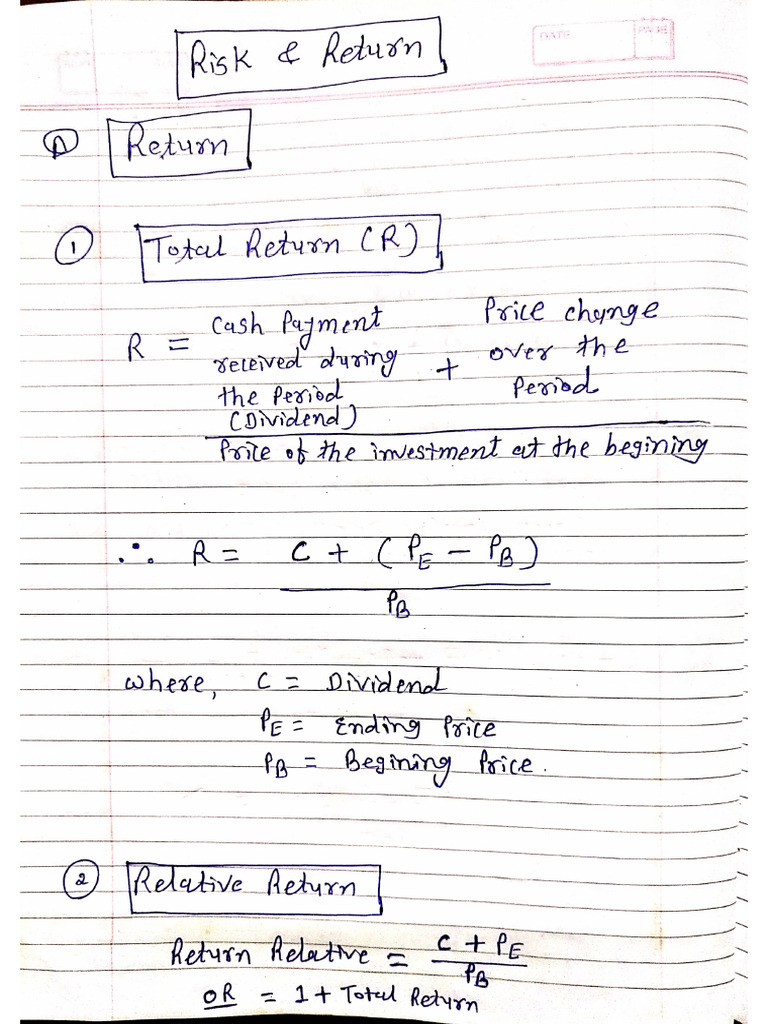 DATE
PAGE
Risk & Return
A Return
1 Total Return (R)
R = Cash Payment received during the Period (Dividend) + Price change over the Period
Price of the investment at the begining
∴ R = C + (PE – PB)
PB
where, C = Dividend
PE = Ending Price
PB = Begining Price.
2 Relative Return
Return Relative = C + PE
PB
OR = 1 + Total Return